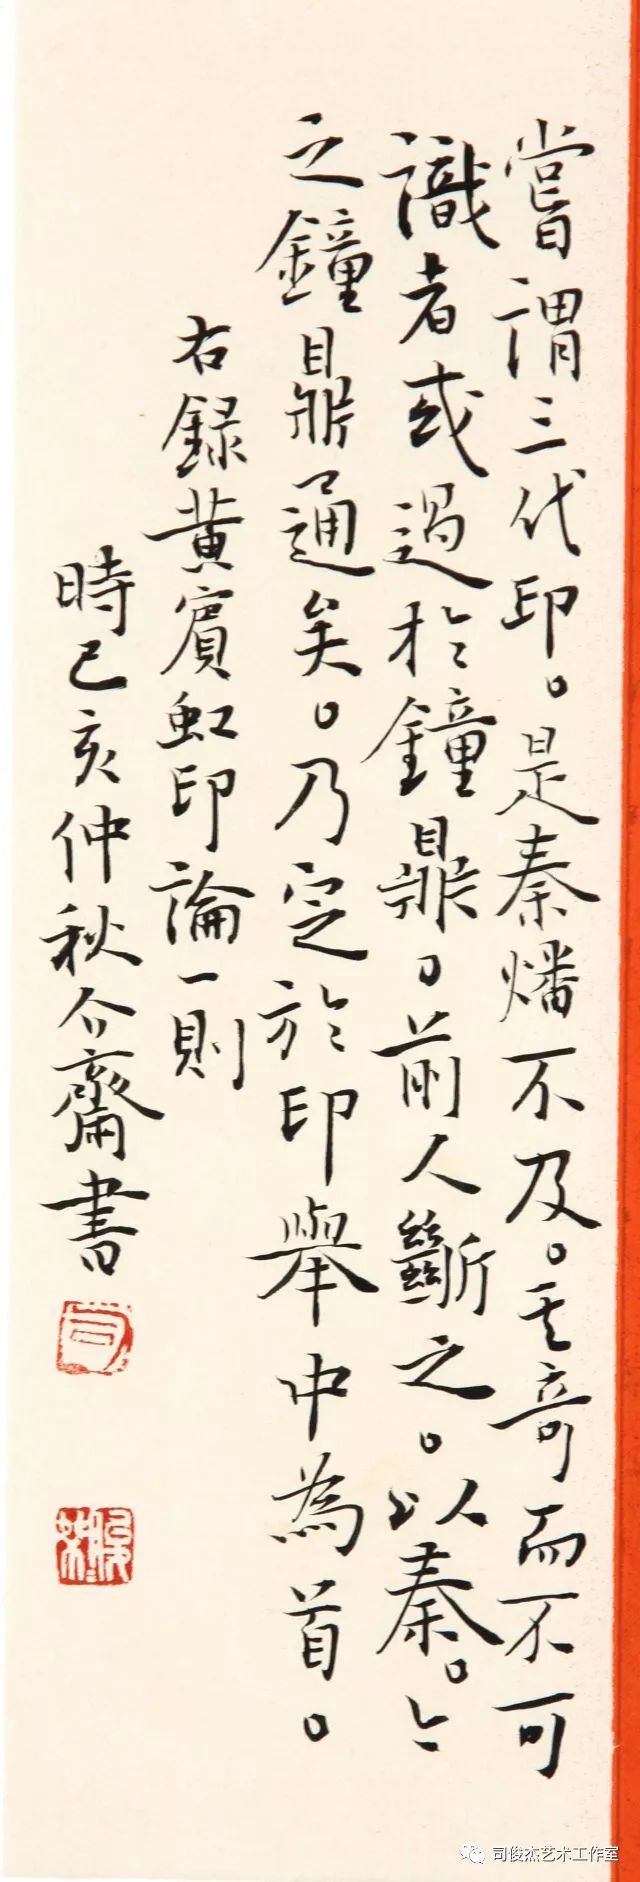 嘗謂三代印。是秦燔不及。其奇而不可
識者或過於鐘鼎。前人斷之。以秦。今
之鐘鼎通矣。乃定於印舉中為首。
右録黄賓虹印論一則
時己亥仲秋介齋書
司
司俊杰艺术工作室